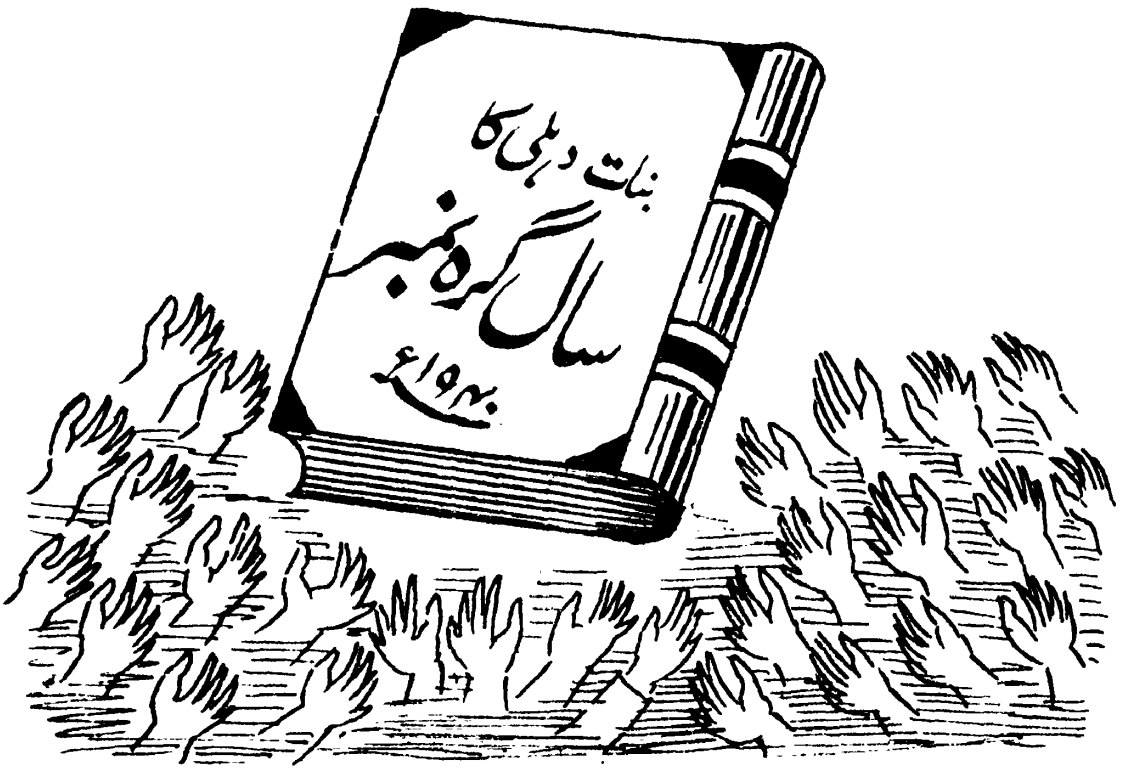 بنات دہلی کا
سال گرہ نمبر
۱۹۴۰ء